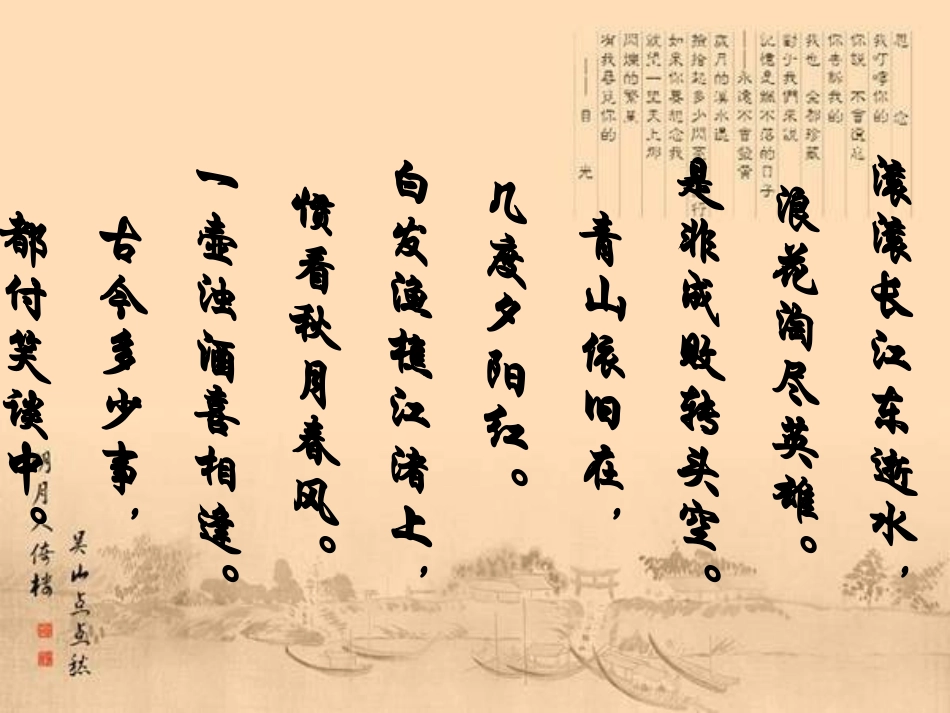 滚滚长江东逝水，
浪花淘尽英雄。
是非成败转头空。
青山依旧在，
几度夕阳红。
白发渔樵江渚上，
惯看秋月春风。
一壶浊酒喜相逢。
古今多少事，
都付笑谈中。
思 念
我叮嚀你的
你說 不會遺忘
你告訴我的
我也 全都珍藏
對於我們來說
記憶是飄不落的日子
——永遠不會發黃
歲月的溪水邊
撿拾起多少閃 行
如果你要想念我
就望一望天上那
閃爍的繁星
有我尋覓你的
——目 光
吴山点点愁
明月人倚楼